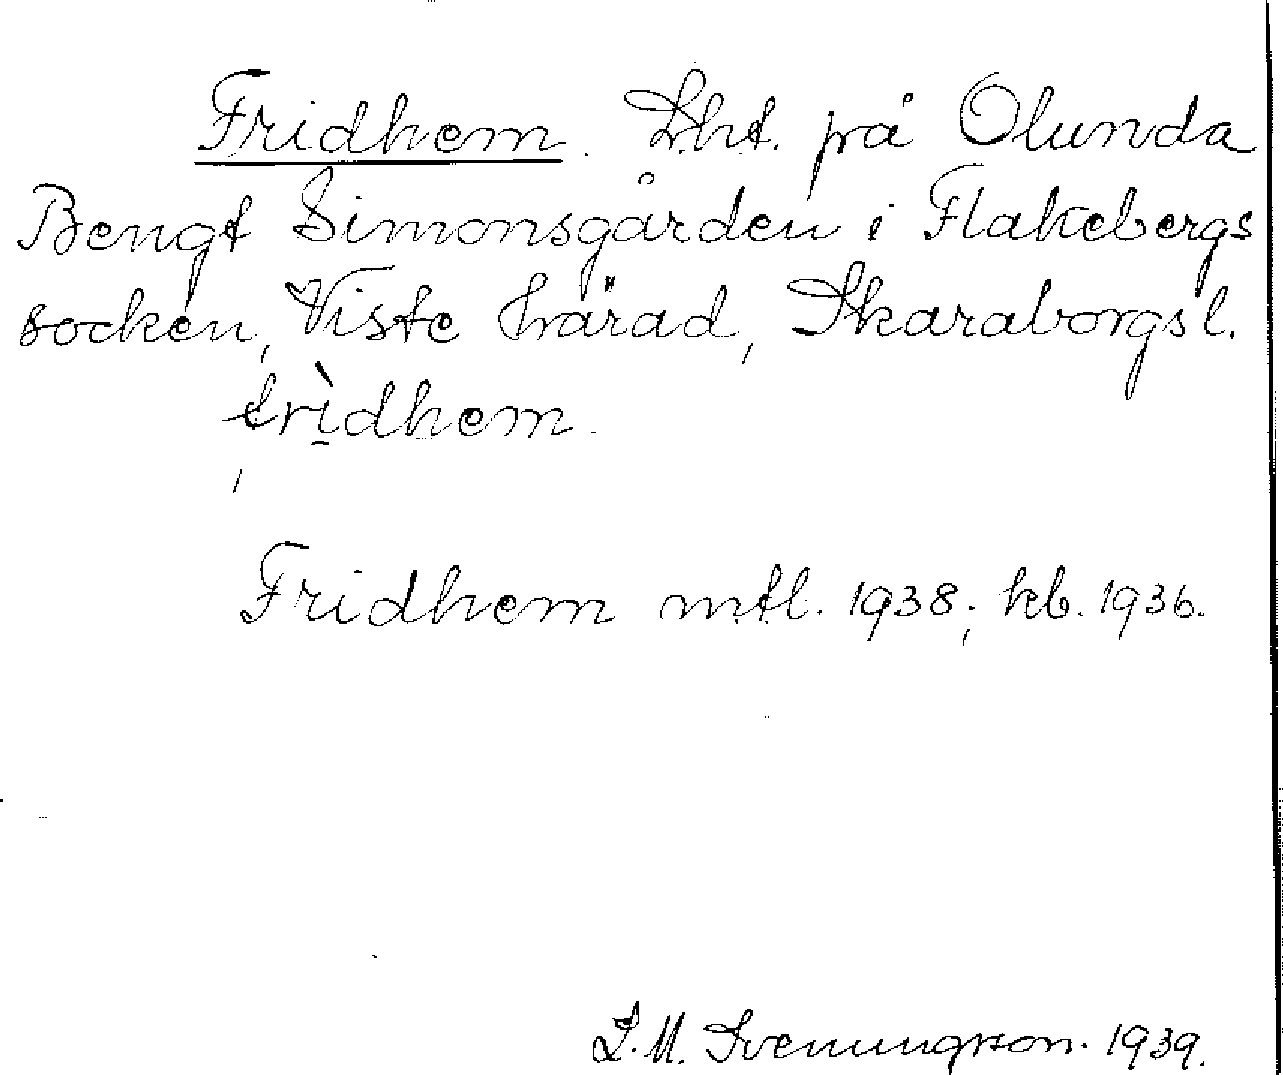 Fridhem. Lht. på Olunda
Bengt Simonsgården i Flakebergs
socken, Viste härad, Skaraborgs l.
frìdhem.
Fridhem mtl. 1938; kb. 1936.
L. M. Svenungsson. 1939.